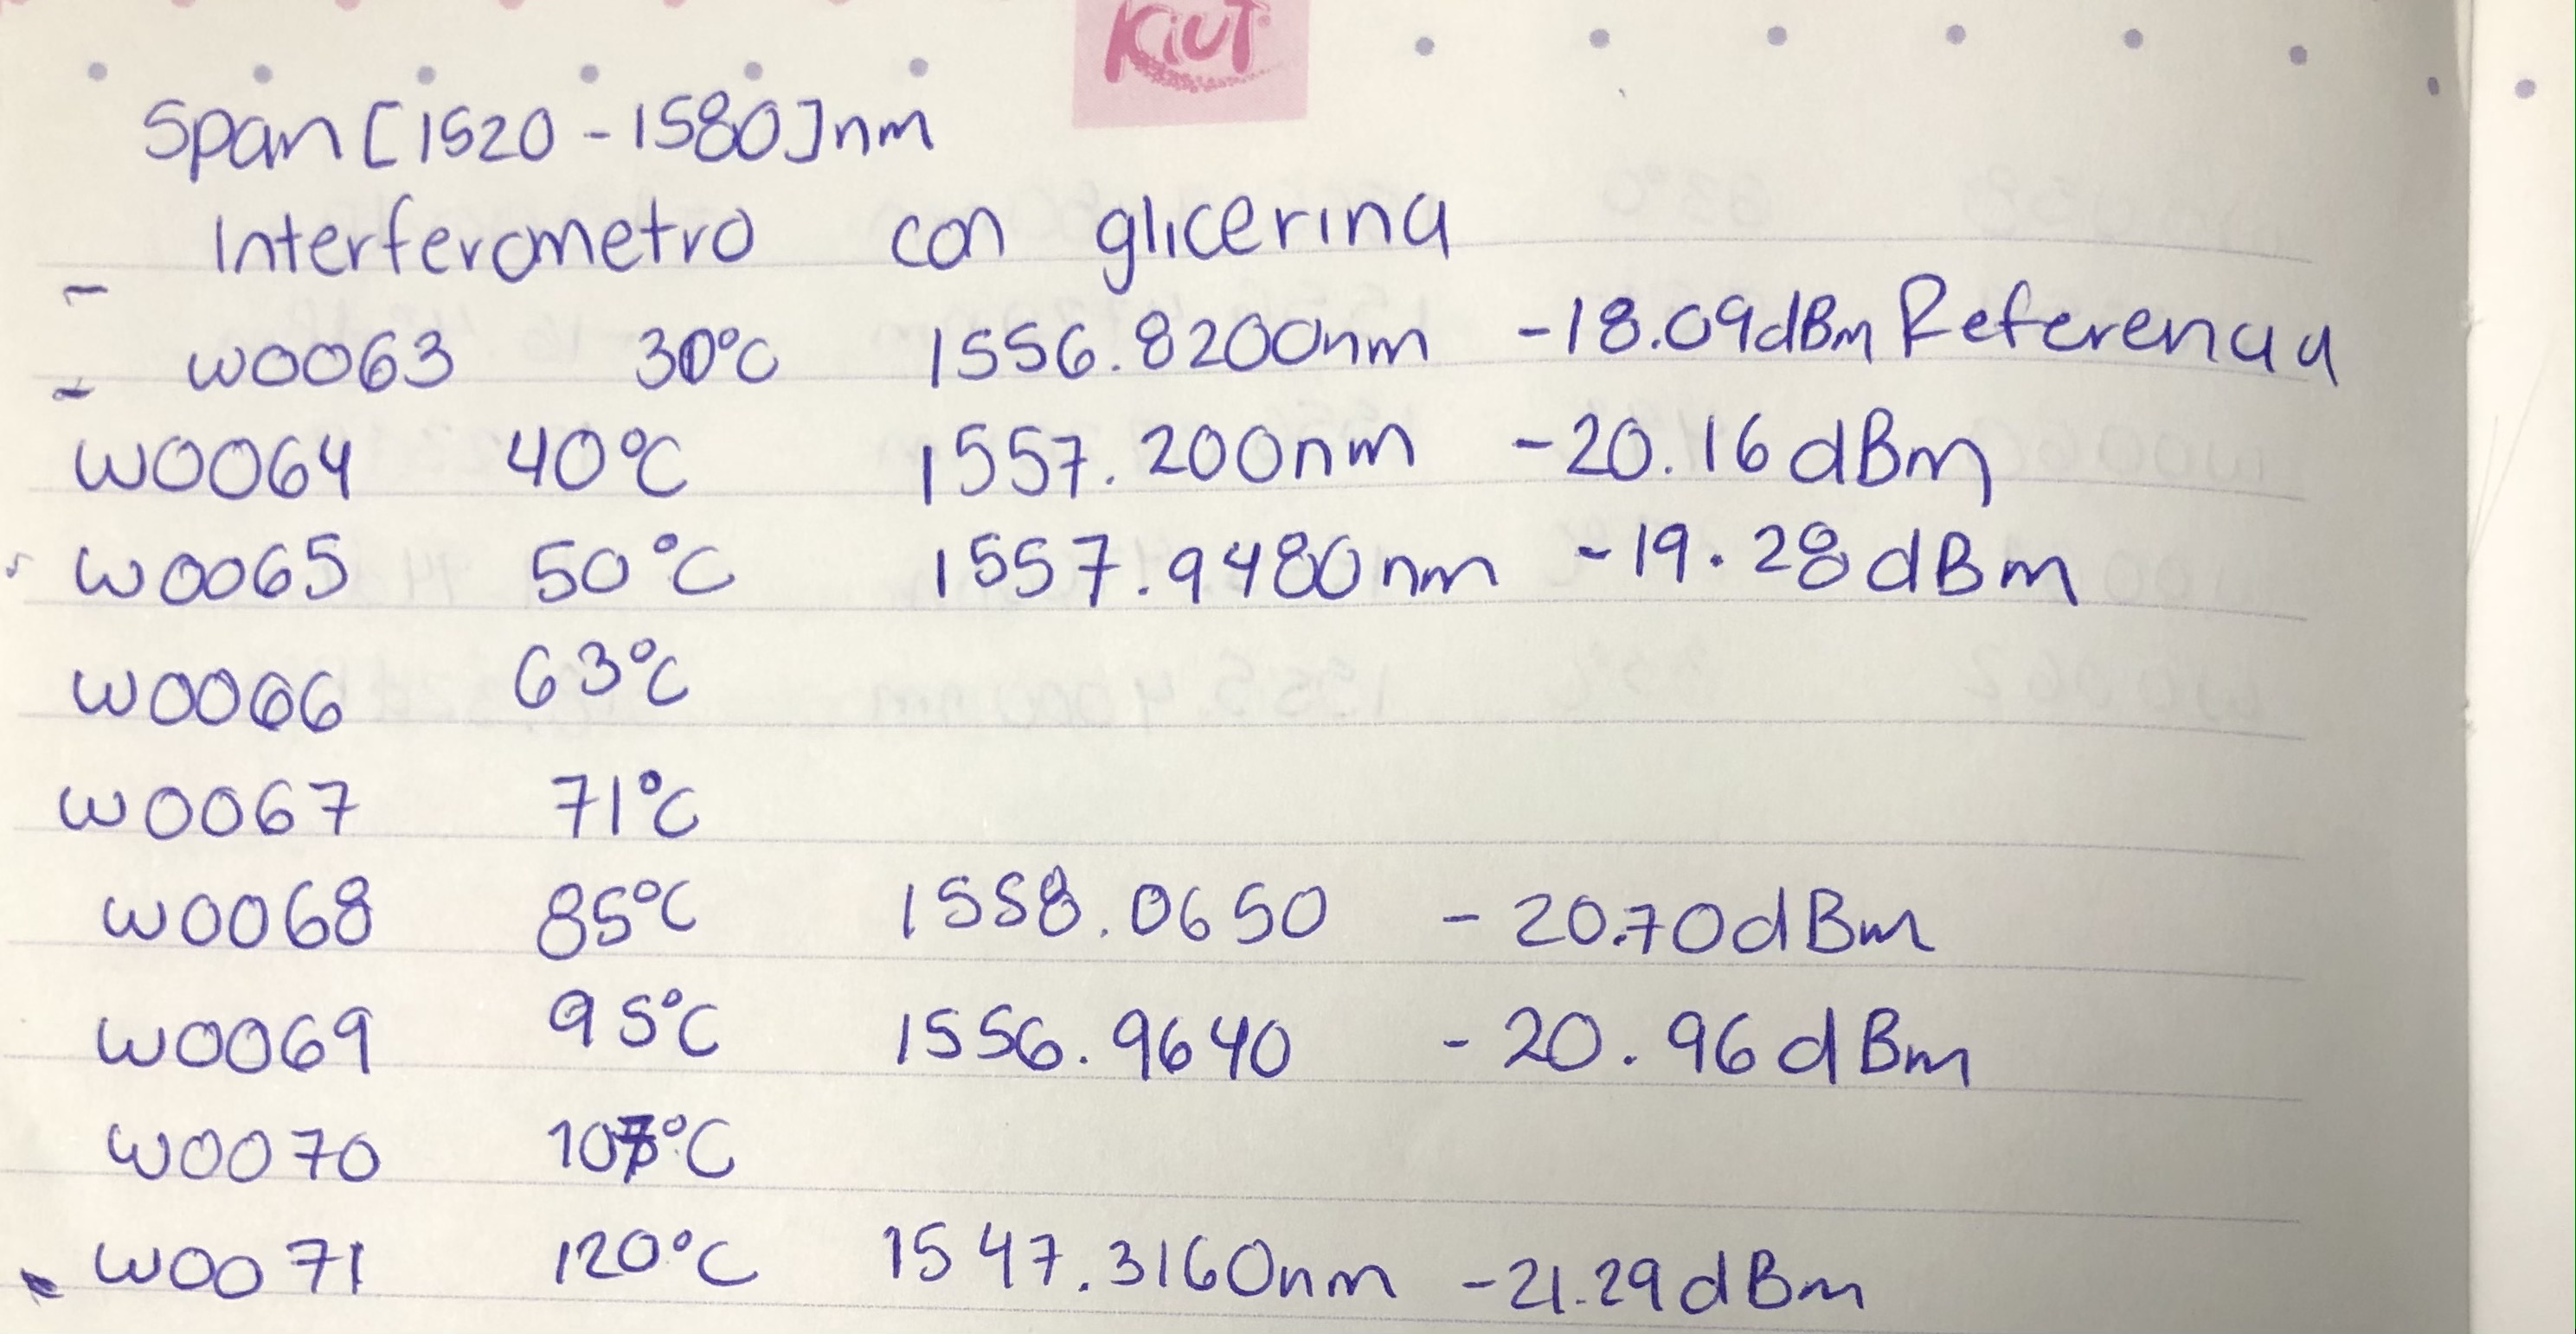 KiUT
Span [1520 - 1580] nm
Interferometro con glicerina
W0063 30°C 1556.8200nm -18.09dBm Referencia
W0064 40°C 1557.200nm -20.16 dBm
W0065 50°C 1557.9480nm -19.28 dBm
W0066 63°C
W0067 71°C
W0068 85°C 1558.0650 -20.70dBm
W0069 95°C 1556.9640 -20.96 dBm
W0070
W0071 120°C 1547.3160nm -21.29 dBm